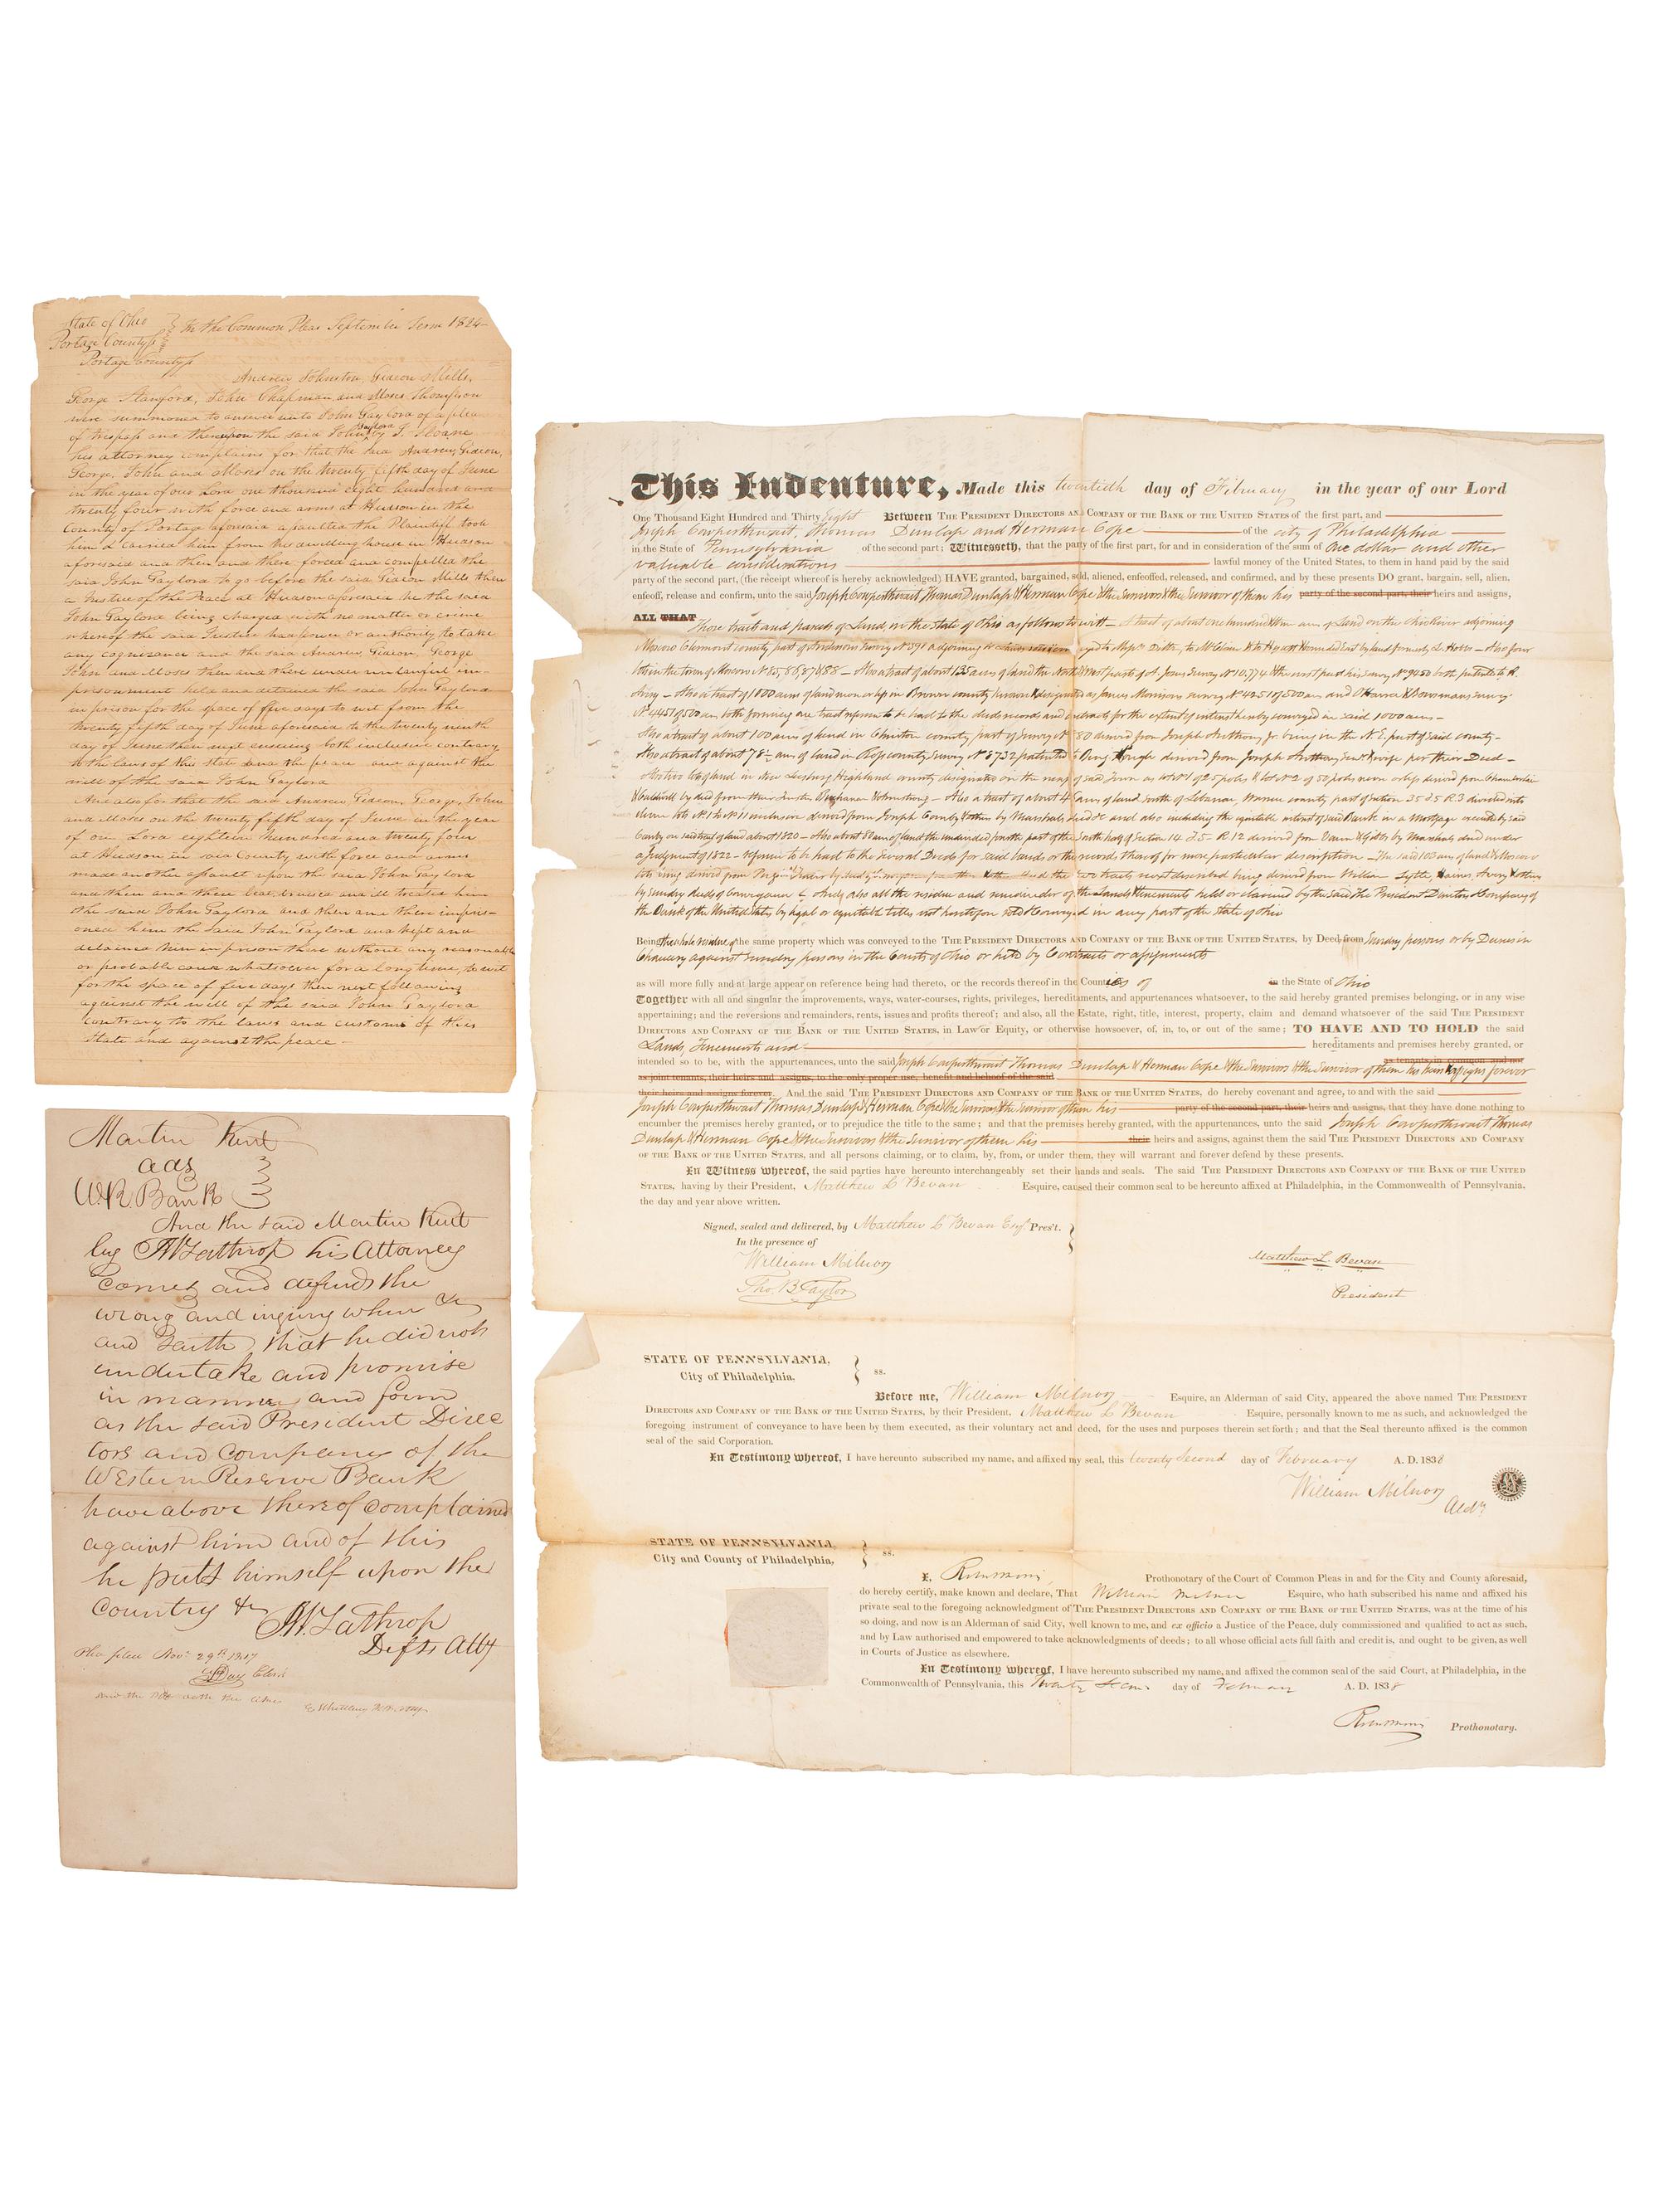 State of Ohio
Portage County ss
In the Common Pleas September Term 1824
Portage County ss
Andrew Johnston, Gideon Mills,
George Stanford, John Chapman and Moses Thompson
were summoned to answer unto John Gaylord of a plea
of trespass and thereupon the said John Gaylord by J. Sloane
his attorney complains for that the said Andrew, Gideon,
George, John and Moses on the twenty fifth day of June
in the year of our Lord one thousand eight hundred and
twenty four with force and arms at Hudson in the
County of Portage aforesaid assaulted the Plaintiff took
him & carried him from the dwelling house in Hudson
aforesaid and then and there forced and compelled the
said John Gaylord to go before the said Gideon Mills then
a Justice of the Peace at Hudson aforesaid he the said
John Gaylord being charged with no matter or crime
whereof the said Justice had power or authority to take
any cognizance and the said Andrew, Gideon, George
John and Moses then and there under unlawful im-
prisonment held and detained the said John Gaylord
in prison for the space of five days to wit from the
twenty fifth day of June aforesaid to the twenty ninth
day of June then next ensuing both inclusive contrary
to the laws of this State and the peace and against the
will of the said John Gaylord
And also for that the said Andrew Gideon, George, John
and Moses on the twenty fifth day of June in the year
of our Lord eighteen hundred and twenty four
at Hudson in said County with force and arms
made another assault upon the said John Gaylord
and then and there beat, bruised and ill treated him
the said John Gaylord and then and there impris-
oned him the said John Gaylord and kept and
detained him in prison there without any reasonable
or probable cause whatsoever for a long time, to wit
for the space of five days then next following
against the will of the said John Gaylord
contrary to the laws and customs of this
State and against the peace
Martin Kent
ads
W.R. Bank
And the said Martin Kent
by A W Lathrop his Attorney
comes and defends the
wrong and injury when &c
and saith that he did not
undertake and promise
in manner and form
as the said President Direc
tors and Company of the
Western Reserve Bank
have above thereof complained
against him and of this
he puts himself upon the
Country &c
Lathrop
Defts Atty
Plea filed Novr 29th
Day Clerk
And the Plff doth the like
E Whittlesey Plffs Atty
This Indenture, Made this twentieth day of February in the year of our Lord
One Thousand Eight Hundred and Thirty Eight Between THE PRESIDENT DIRECTORS AND COMPANY OF THE BANK OF THE UNITED STATES of the first part, and
Joseph Cowperthwait, Thomas Dunlap and Herman Cope of the city of Philadelphia
in the State of Pennsylvania of the second part; Witnesseth, that the party of the first part, for and in consideration of the sum of One dollar and other
valuable considerations lawful money of the United States, to them in hand paid by the said
party of the second part, (the receipt whereof is hereby acknowledged) HAVE granted, bargained, sold, aliened, enfeoffed, released, and confirmed, and by these presents DO grant, bargain, sell, alien,
enfeoff, release and confirm, unto the said Joseph Cowperthwait Thomas Dunlap & Herman Cope & the Survivors & the Survivor of them his party of the second part, their heirs and assigns,
ALL THAT Those tracts and parcels of Land, in the state of Ohio as follows to witt - A tract of about one hundred acres of Land on the Ohio River adjoining
Moscow Clermont county part of survey No 391 adjoining
lots in the town of Moscow No 85, 86, 87 & 88 - Also a tract of about 135 acres of land the North West parts of A. Jones Survey No 10,774 & the west part his survey No 9050 both patented to R.
Avery - Also a tract of 1000 acres of land more or less in Brown county known & designated as James Morrisons survey No 4251 of 500 acres and Survey
No 4451 of 500 acres both forming one tract reference to be had to the deeds record and contracts for the extent of interest hereby conveyed in said 1000 acres -
Also a tract of about 100 acres of land in Clinton county part of Survey No 80 derived from Joseph Anthony Jr. being in the N. E. part of said county -
Also a tract of about 78½ acres of land in Ross county Survey No 8732 patented to derived from Joseph Anthony Senr & wife per their Deed -
Also two lots of land in New Lexburg Highland county designated on the map of said Town as Lot No 1 of 25 poles & Lot No 2 of 50 poles more or less derived from Chamberlin
& Caldwell by deed from their trustees Buchanan & Armstrong - Also a tract of about 4 acres of land north of Lebanon, Warren county part of section 35 T. 5 R. 3 divided into
eleven lots No 1 to No 11 inclusive derived from Joseph Canby & others by Marshals deed &c and also including the equitable interest of said Bank in a Mortgage executed by said
Canby on said tract of land about 1820 - Also about 80 acres of land the undivided fourth part of the South half of Section 14 T. 5 - R. 12 derived from by Marshals deed under
a Judgment of 1822 - reference to be had to the Several Deeds for said lands or the records thereof for more particular description - The said 100 acres of land & Moscow
lots being derived from the two tracts next described being derived from William Lytle Haines, Avery & others
by sundry deeds of Conveyance & And also all the residue and remainder of the Lands & tenements held or claimed by the said The President Directors & Company of
the Bank of the United States by legal or equitable titles not heretofore sold & Conveyed in any part of the State of Ohio
Being the whole residue of the same property which was conveyed to the THE PRESIDENT DIRECTORS AND COMPANY OF THE BANK OF THE UNITED STATES, by Deed from Sundry persons or by Decrees in
Chancery against Sundry persons in the Courts of Ohio or held by Contracts or assignments
as will more fully and at large appear on reference being had thereto, or the records thereof in the Counties of in the State of Ohio
Together with all and singular the improvements, ways, water-courses, rights, privileges, hereditaments, and appurtenances whatsoever, to the said hereby granted premises belonging, or in any wise
appertaining; and the reversions and remainders, rents, issues and profits thereof; and also, all the Estate, right, title, interest, property, claim and demand whatsoever of the said THE PRESIDENT
DIRECTORS AND COMPANY OF THE BANK OF THE UNITED STATES, in Law or Equity, or otherwise howsoever, of, in, to, or out of the same; TO HAVE AND TO HOLD the said
Lands, Tenements and hereditaments and premises hereby granted, or
intended so to be, with the appurtenances, unto the said Joseph Cowperthwait Thomas Dunlap & Herman Cope & the Survivors & the Survivor of them his heirs & assigns forever as tenants in common and not
as joint tenants, their heirs and assigns, to the only proper use, benefit and behoof of the said
their heirs and assigns forever. And the said THE PRESIDENT DIRECTORS AND COMPANY OF THE BANK OF THE UNITED STATES, do hereby covenant and agree, to and with the said
Joseph Cowperthwait Thomas Dunlap & Herman Cope & the Survivors & the Survivor of them his party of the second part, their heirs and assigns, that they have done nothing to
encumber the premises hereby granted, or to prejudice the title to the same; and that the premises hereby granted, with the appurtenances, unto the said Joseph Cowperthwait Thomas
Dunlap & Herman Cope & the Survivors & the Survivor of them his their heirs and assigns, against them the said THE PRESIDENT DIRECTORS AND COMPANY
OF THE BANK OF THE UNITED STATES, and all persons claiming, or to claim, by, from, or under them, they will warrant and forever defend by these presents.
In Witness whereof, the said parties have hereunto interchangeably set their hands and seals. The said THE PRESIDENT DIRECTORS AND COMPANY OF THE BANK OF THE UNITED
STATES, having by their President, Matthew L Bevan Esquire, caused their common seal to be hereunto affixed at Philadelphia, in the Commonwealth of Pennsylvania,
the day and year above written.
Signed, sealed and delivered, by Matthew L Bevan Esqr Pres't.
In the presence of
William Milnor
Tho. B. Taylor
Matthew L. Bevan
President
STATE OF PENNSYLVANIA,
City of Philadelphia, ss.
Before me, William Milnor Esquire, an Alderman of said City, appeared the above named THE PRESIDENT
DIRECTORS AND COMPANY OF THE BANK OF THE UNITED STATES, by their President, Matthew L Bevan Esquire, personally known to me as such, and acknowledged the
foregoing instrument of conveyance to have been by them executed, as their voluntary act and deed, for the uses and purposes therein set forth; and that the Seal thereunto affixed is the common
seal of the said Corporation.
In Testimony whereof, I have hereunto subscribed my name, and affixed my seal, this twenty second day of February A. D. 1838
William Milnor
Aldn
STATE OF PENNSYLVANIA,
City and County of Philadelphia, ss.
I, Prothonotary of the Court of Common Pleas in and for the City and County aforesaid,
do hereby certify, make known and declare, That William Milnor Esquire, who hath subscribed his name and affixed his
private seal to the foregoing acknowledgment of THE PRESIDENT DIRECTORS AND COMPANY OF THE BANK OF THE UNITED STATES, was at the time of his
so doing, and now is an Alderman of said City, well known to me, and ex officio a Justice of the Peace, duly commissioned and qualified to act as such,
and by Law authorised and empowered to take acknowledgments of deeds; to all whose official acts full faith and credit is, and ought to be given, as well
in Courts of Justice as elsewhere.
In Testimony whereof, I have hereunto subscribed my name, and affixed the common seal of the said Court, at Philadelphia, in the
Commonwealth of Pennsylvania, this Twenty day of February A. D. 1838
Prothonotary.